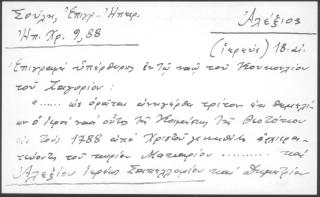 Σούλη, Ἐπιγρ. Ἠπειρ.
Ἀλέξιος
Ἠπ. Χρ. 9,88
(ἱερεύς) 18. αἰ.
Ἐπιγραφὴ ὑπέρθυρος ἐν τῷ ναῷ τοῦ Κουκουλίου
τοῦ Ζαγορίου:
"...... ὡς ὁρᾶται ἀνηγέρθη τρίτον ἐκ θεμελί-
ων ὁ ἱερὸς ναὸς οὗτος τῆς Κοιμήσεως τῆς Θεοτόκου
ἐν ἔτους 1788 ἀπὸ Χριστοῦ γεννηθέντος ἀρχιερα-
τεύοντος τοῦ κυρίου Μακαρίου .......... καὶ
Ἀλεξίου ἱερέως Σακελλαρίου καὶ